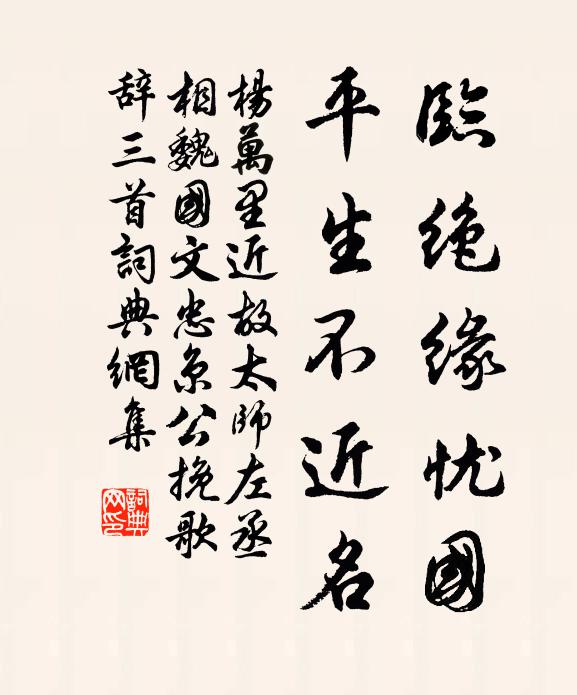 臨绝缘忧國
平生不近名
楊萬里近故太師左丞
相魏國文忠京公挽歌
辞三首詞典網集
詞典
网印